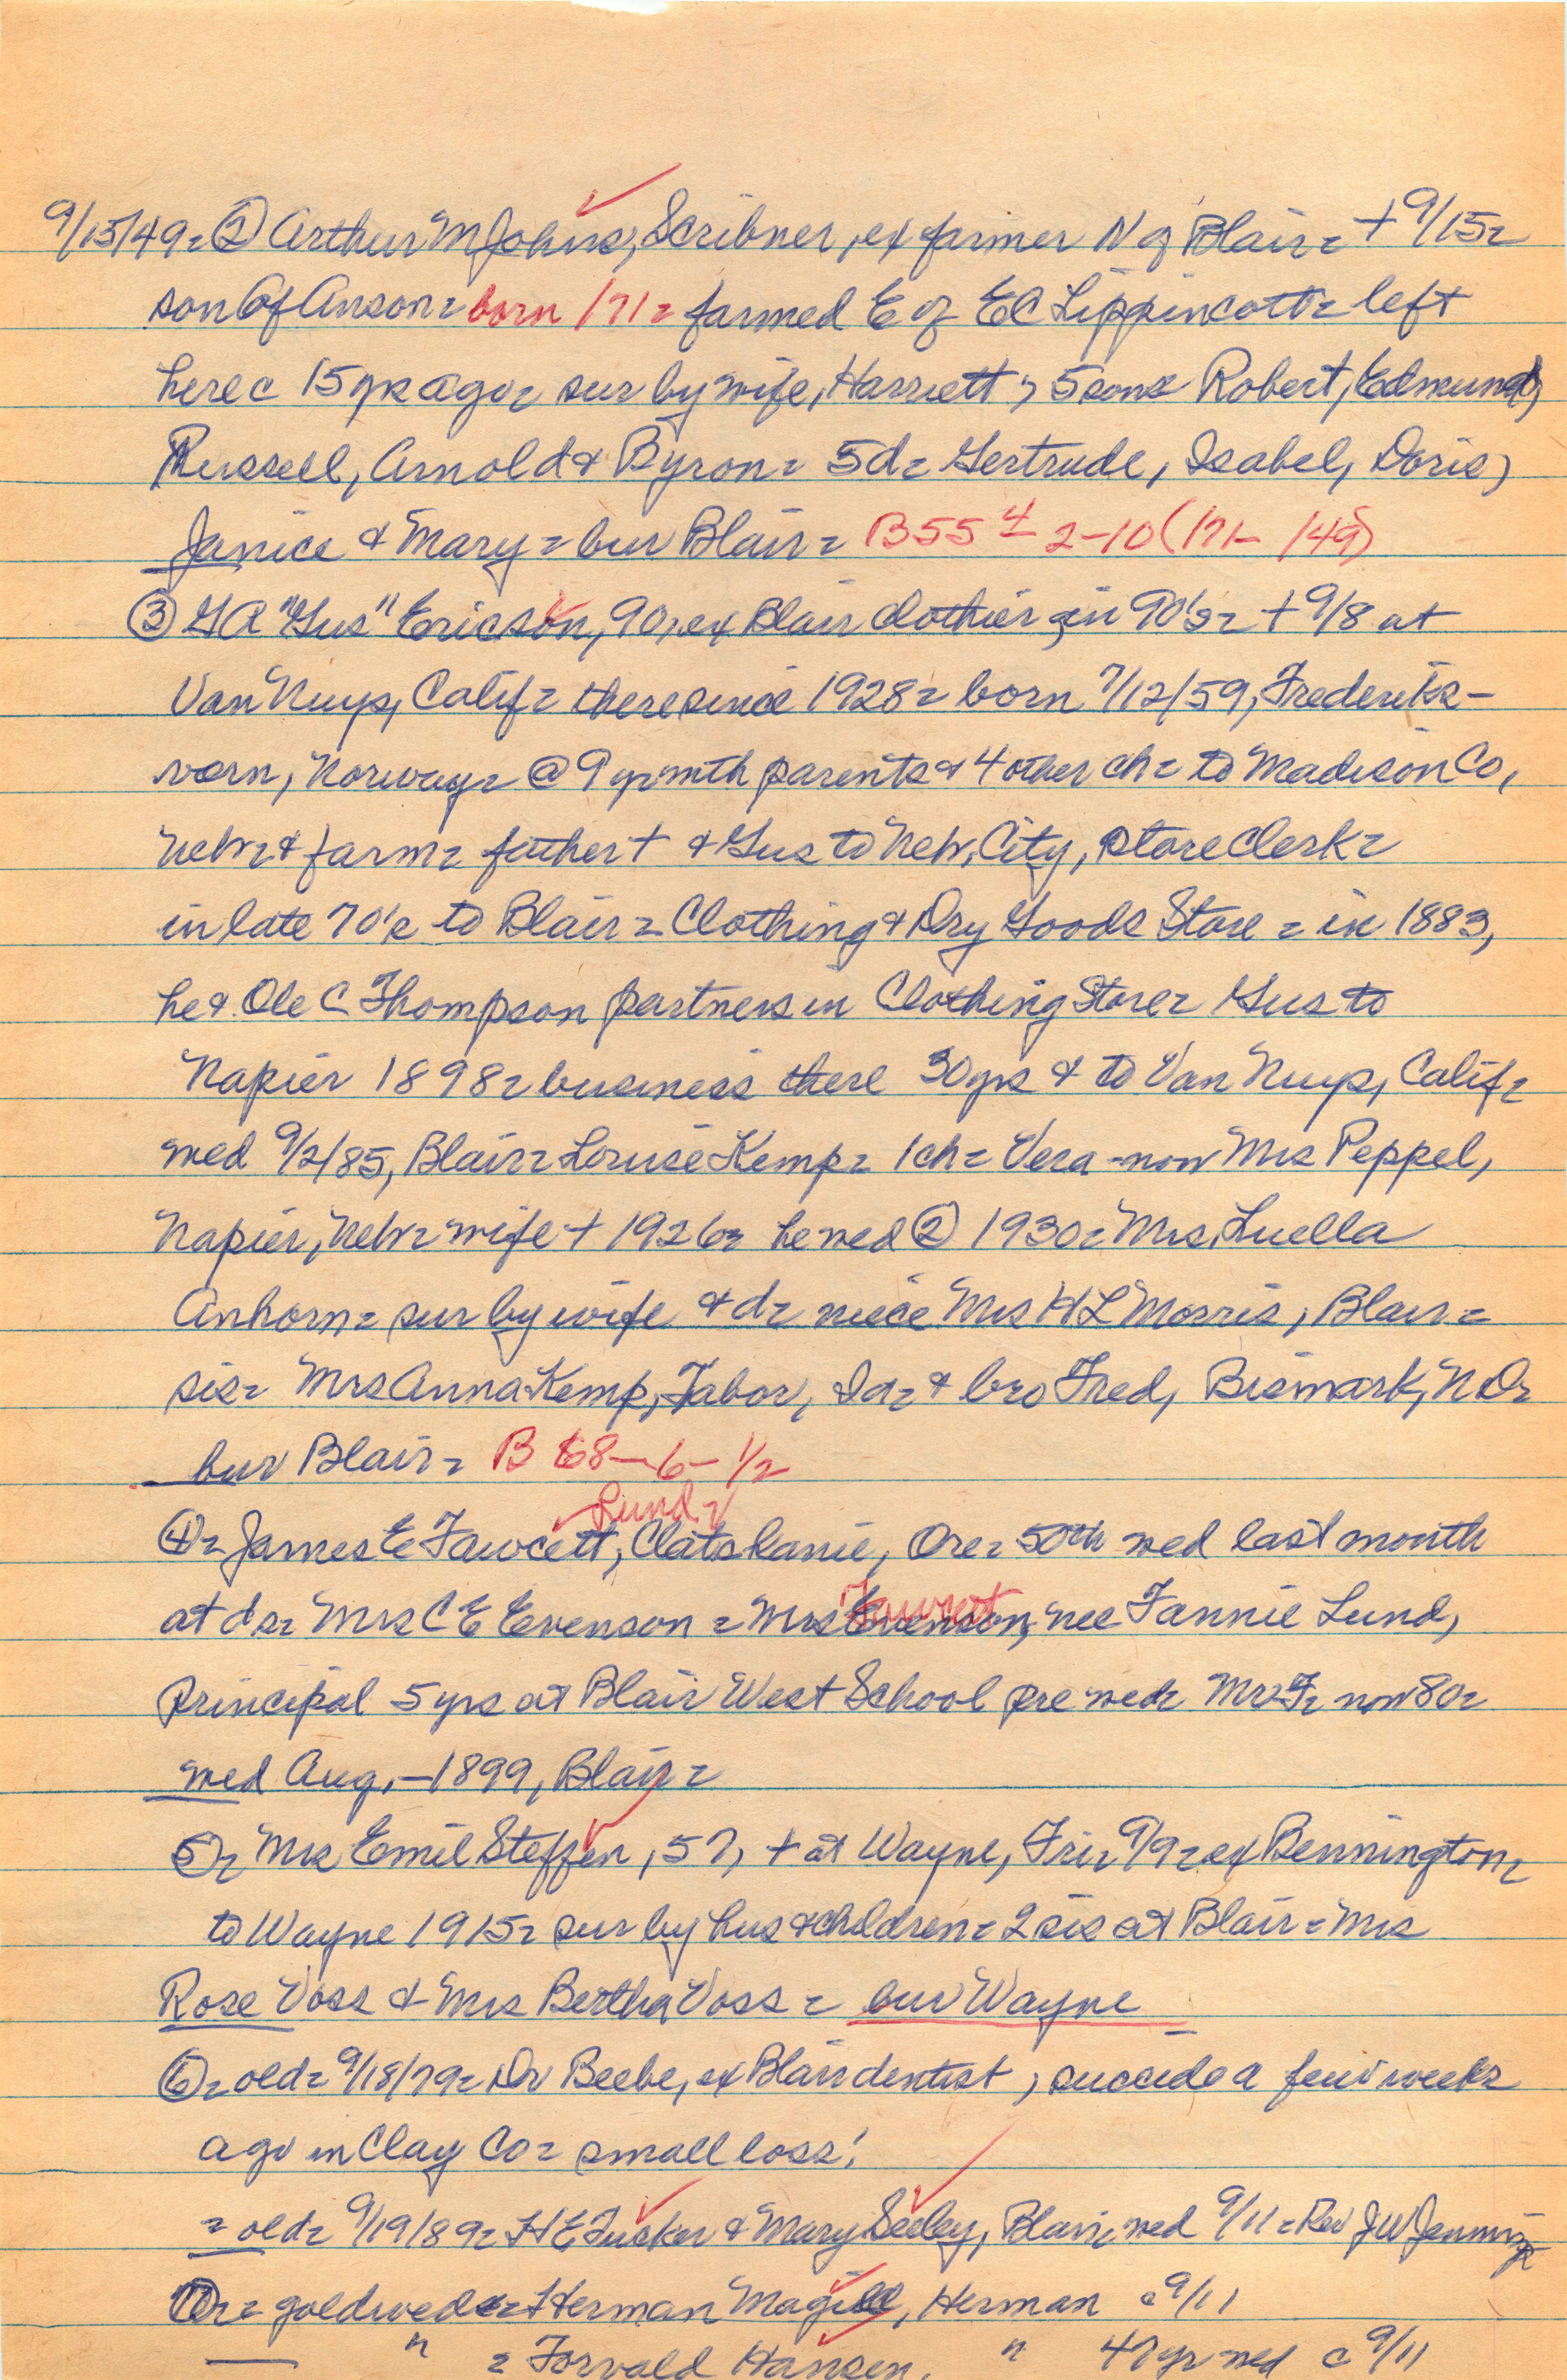 9/15/49 = ② Arthur M Johns, Scribner, ex farmer N of Blair = + 9/15 =
son of Anson = born /71 = farmed E of EC Lippincott = left
here c 15 yrs ago = sur by wife, Harriett, 5 sons Robert, Edmund,
Russell, Arnold & Byron = 5d = Gertrude, Isabel, Doris,
Janice & Mary = bur Blair = B55 4 2-10 (/71 - /49)
③ GA "Gus" Ericson, 90, ex Blair clothier in 90's = + 9/8 at
Van Nuys, Calif = there since 1928 = born 7/12/59, Frederiks-
vorn, Norway = @ 9 yr with parents & 4 other ch = to Madison Co,
Nebr = & farm = father + & Gus to Nebr, City, store clerk =
in late 70's to Blair = Clothing & Dry Goods Store = in 1883,
he & Ole C Thompson partners in Clothing Store = Gus to
Napier 1898 = business there 30 yrs & to Van Nuys, Calif =
wed 9/2/85, Blair = Louise Kemp = 1ch = Vera - now Mrs Peppel,
Napier, Nebr = wife + 1926 = he wed ② 1930 = Mrs. Luella
Anhorn = sur by wife & d = niece Mrs H L Morris, Blair =
sis = Mrs Anna Kemp, Tabor, Ia = & bro Fred, Bismark, ND =
bur Blair = B 68-6-1/2
Lund =
④ = James E Fawcett, Clatskanie, Ore = 50th wed last month
at ds = Mrs C E Evenson = Mrs Evenson, Fawcett nee Fannie Lund,
Principal 5 yrs at Blair West School pre wed = Mr F = now 80 =
wed Aug, - 1899, Blair =
⑤ = Mrs Emil Steffen, 57, + at Wayne, Fri = 9/9 = ex Bennington =
to Wayne 1915 = sur by hus & children = 2 sis at Blair = Mrs
Rose Voss & Mrs Bertha Voss = bur Wayne
⑥ = old = 9/18/79 = Dr Beebe, ex Blair dentist, suecide a few weeks
ago in Clay Co = small loss!
= old = 9/19/89 = H E Tucker & Mary Seeley, Blair, wed 9/11 = Rev J W Jennings
= gold wed = Herman Magill, Herman c 9/11
" = Torvald Hansen, " 47 yr wed c 9/11